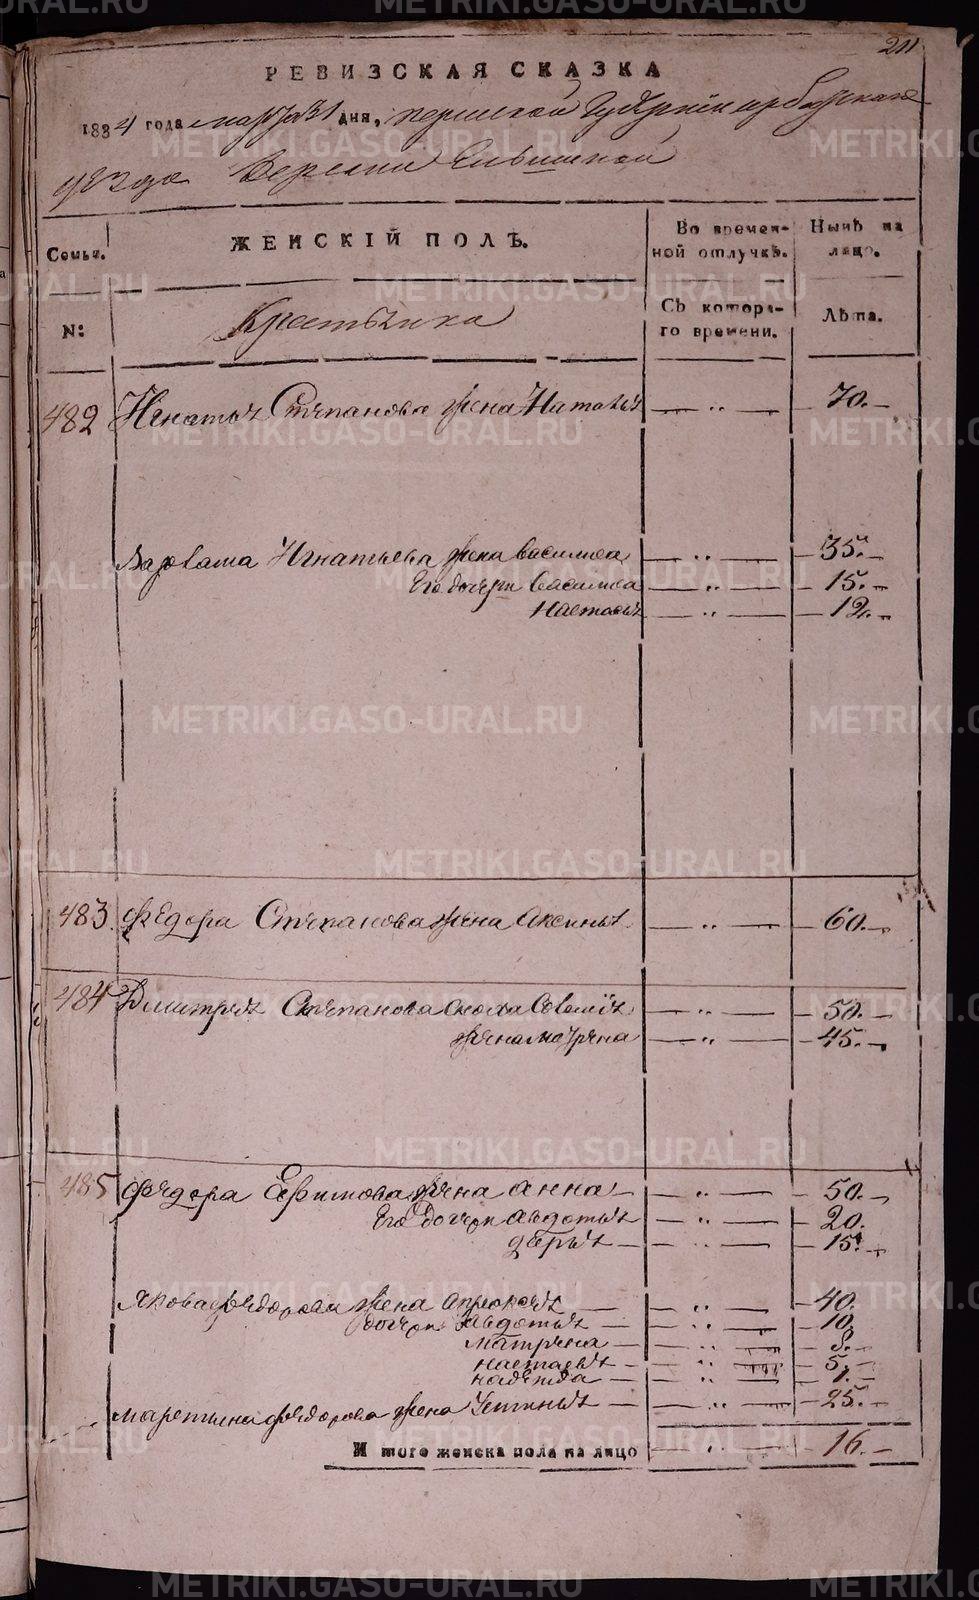 211
РЕВИЗСКАЯ СКАЗКА
1834 года марта 31 дня, пермской Губернии ирбитскаго
уезда Деревни
Семьи.
ЖЕНСКІЙ ПОЛЪ.
Во времен-
ной отлучкѣ.
Нынѣ на
лицо.
№:
Крестьянка
Съ котора-
го времени.
Лѣта.
482 Игнатья Степанова жена Наталья — „ — 70.
Варлама Игнатьева жена василиса — „ — 35.
Его дочери Василиса — „ — 15.
Настасья — „ — 12.
483 Федора Степанова жена Аксинья — „ — 60.
484 Дмитрея Степанова сноха — „ — 50.
жена матрена — „ — 45.
485 Федора Ефимова жена анна — „ — 50.
Его дочери авдотья — „ — 20.
дарья — „ — 15.
Якова федорова жена — „ — 40.
дочери авдотья — „ — 10.
матрена — „ — 8.
настасья — „ — 5.
надежда — „ — 1.
мартына федорова жена Устинья — „ — 25.
И того женска пола на лицо — „ — 16.
METRIKI.GASO-URAL.RU